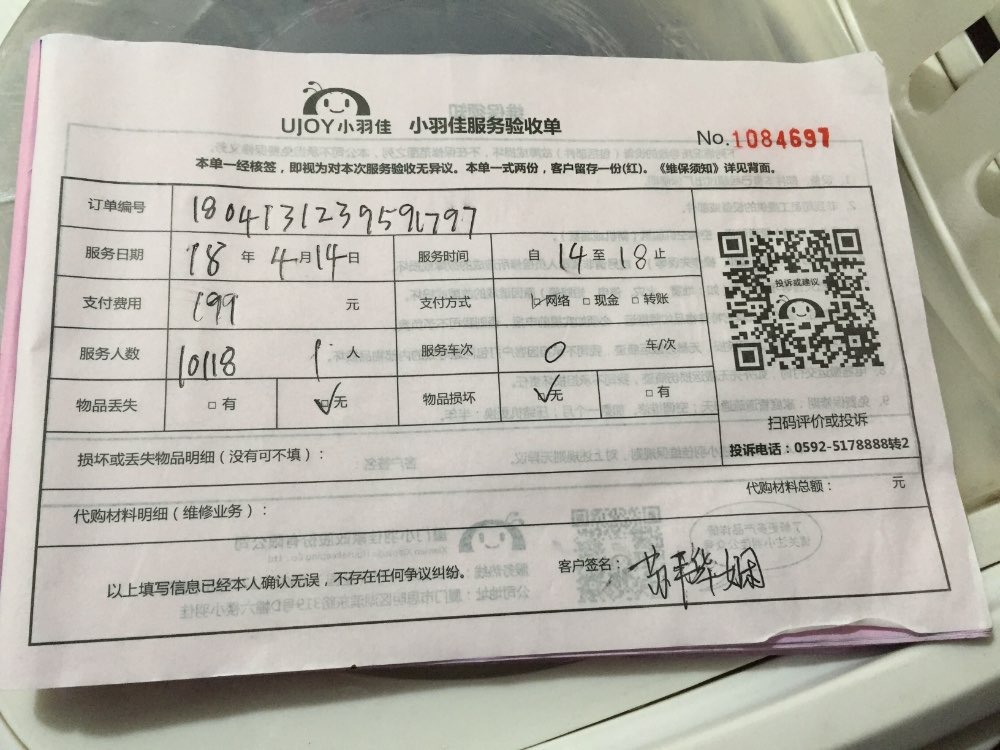 UJOY小羽佳 小羽佳服务验收单
No.1084697
本单一经核签，即视为对本次服务验收无异议。本单一式两份，客户留存一份(红)。《维保须知》详见背面。
订单编号 1804131239596797
服务日期 18 年 4月14日 服务时间 自 14 至 18 止
支付费用 199 元 支付方式 ☑网络 □现金 □转账
服务人数 10118 1 人 服务车次 0 车/次
物品丢失 □有 ☑无 物品损坏 ☑无 □有
投诉或建议
扫码评价或投诉
投诉电话：0592-5178888转2
损坏或丢失物品明细（没有可不填）：
代购材料总额： 元
代购材料明细（维修业务）：
以上填写信息已经本人确认无误，不存在任何争议纠纷。
客户签名：